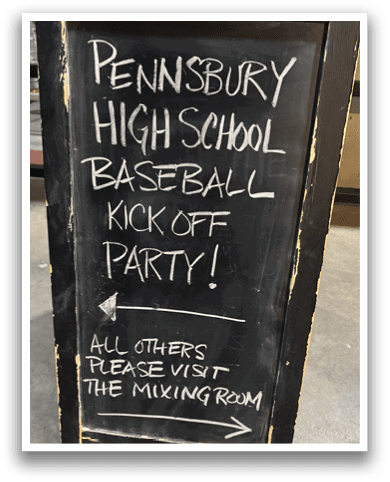 PENNSBURY
HIGH SCHOOL
BASEBALL
KICK OFF
PARTY!
ALL OTHERS
PLEASE VISIT
THE MIXING ROOM